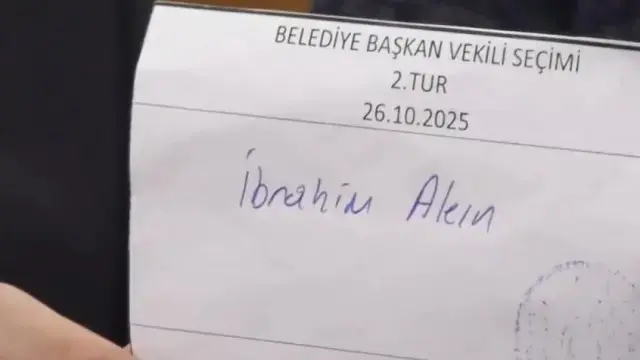 BELEDİYE BAŞKAN VEKİLİ SEÇİMİ
2.TUR
26.10.2025
İbrahim Akın